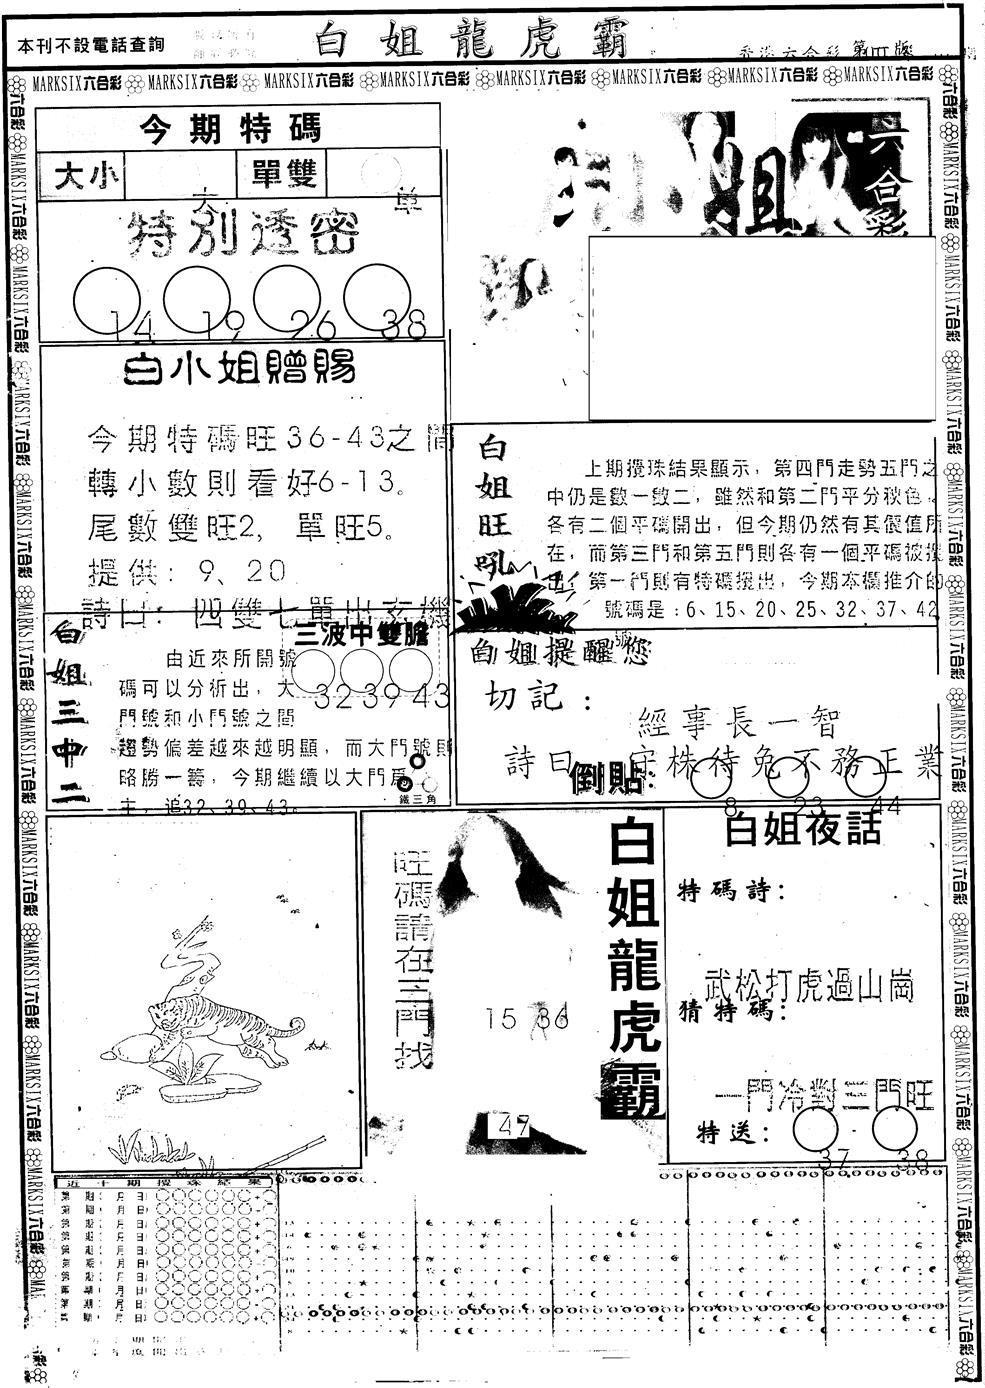 本刊不設電話查詢
白姐龍虎霸
香港六合彩
MARKSIX六合彩 MARKSIX六合彩 MARKSIX六合彩 MARKSIX六合彩 MARKSIX六合彩 MARKSIX六合彩 MARKSIX六合彩 MARKSIX六合彩
今期特碼
大小 大 單雙 单
特別透密
14 19 26 38
六合彩
白小姐贈賜
今期特碼旺36-43之間
轉小數則看好6-13。
尾數雙旺2, 單旺5。
提供: 9、20
詩曰: 四雙七單出玄機
白姐旺吼
上期攪珠結果顯示，第四門走勢五門之
中仍是數一數二，雖然和第二門平分秋色。
各有二個平碼開出，但今期仍然有其價值所
在，而第三門和第五門則各有一個平碼被攪
出，第一門則有特碼攪出，今期本欄推介的
號碼是：6、15、20、25、32、37、42
號
白姐三中二
由近來所開號
碼可以分析出，大
門號和小門號之間
趨勢偏差越來越明顯，而大門號則
略勝一籌，今期繼續以大門為
主，追32、39、43。
三波中雙膽
32 39 43
鐵三角
白姐提醒您
切記：
經事長一智
詩曰：守株待兔不務正業
倒貼:
8 23 44
旺碼請在三門找
15 36
47
白姐龍虎霸
白姐夜話
特碼詩:
武松打虎過山崗
猜特碼:
一門冷對三門旺
特送:
37 38
近十期攪珠結果